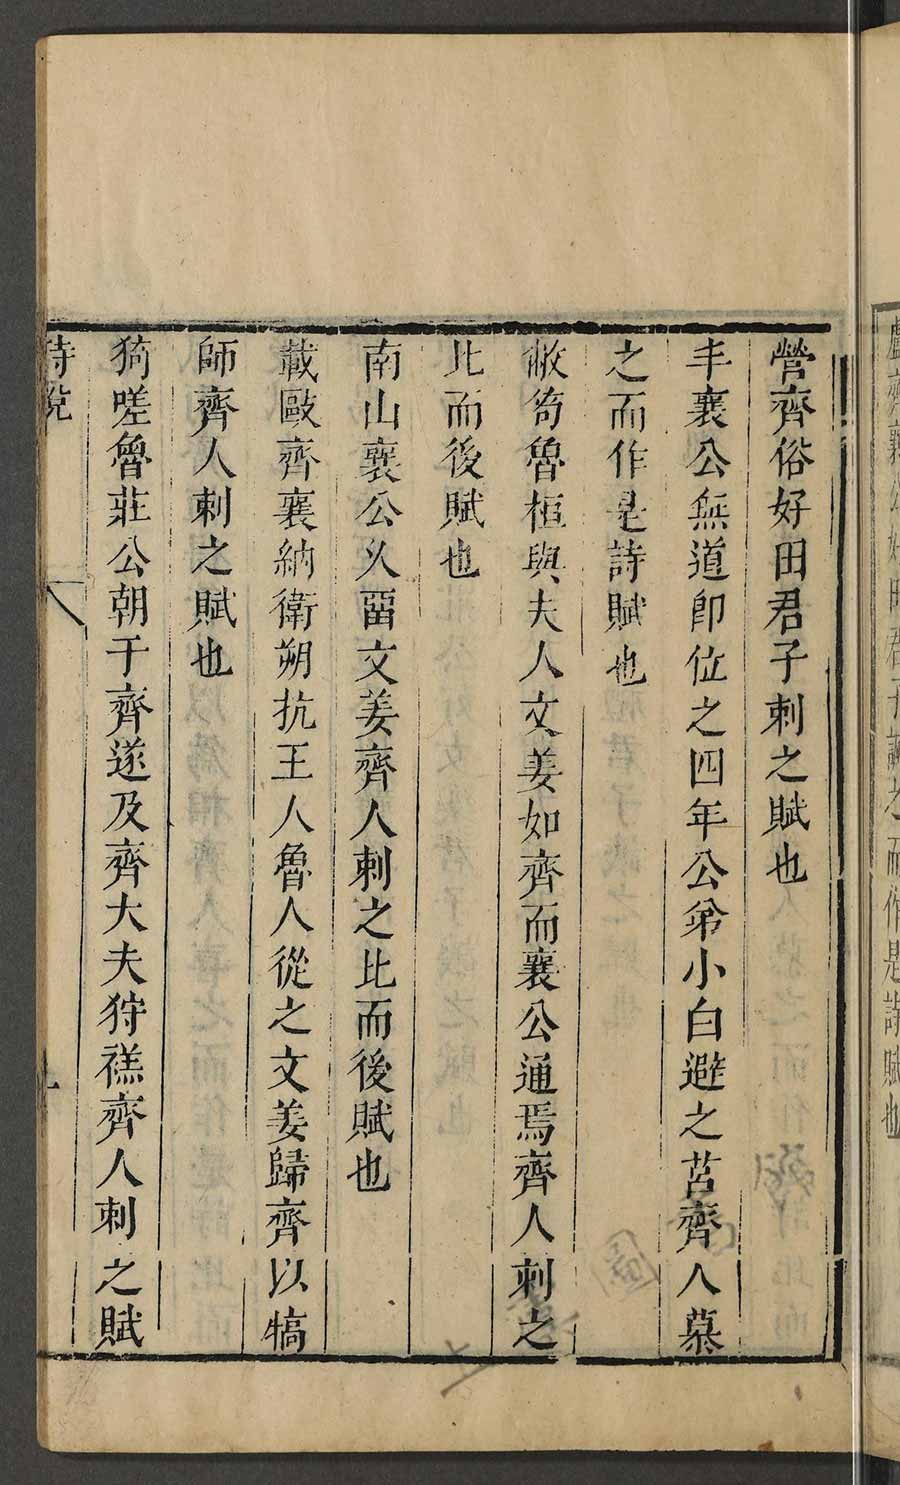 營齊俗好田君子刺之賦也
丰襄公無道卽位之四年公弟小白避之莒齊人慕
之而作是詩賦也
敝笱魯桓與夫人文姜如齊而襄公通焉齊人刺之
比而後賦也
南山襄公久畱文姜齊人刺之比而後賦也
載敺齊襄納衛朔抗王人魯人從之文姜歸齊以犒
師齊人刺之賦也
猗嗟魯莊公朝于齊遂及齊大夫狩禚齊人刺之賦
詩說